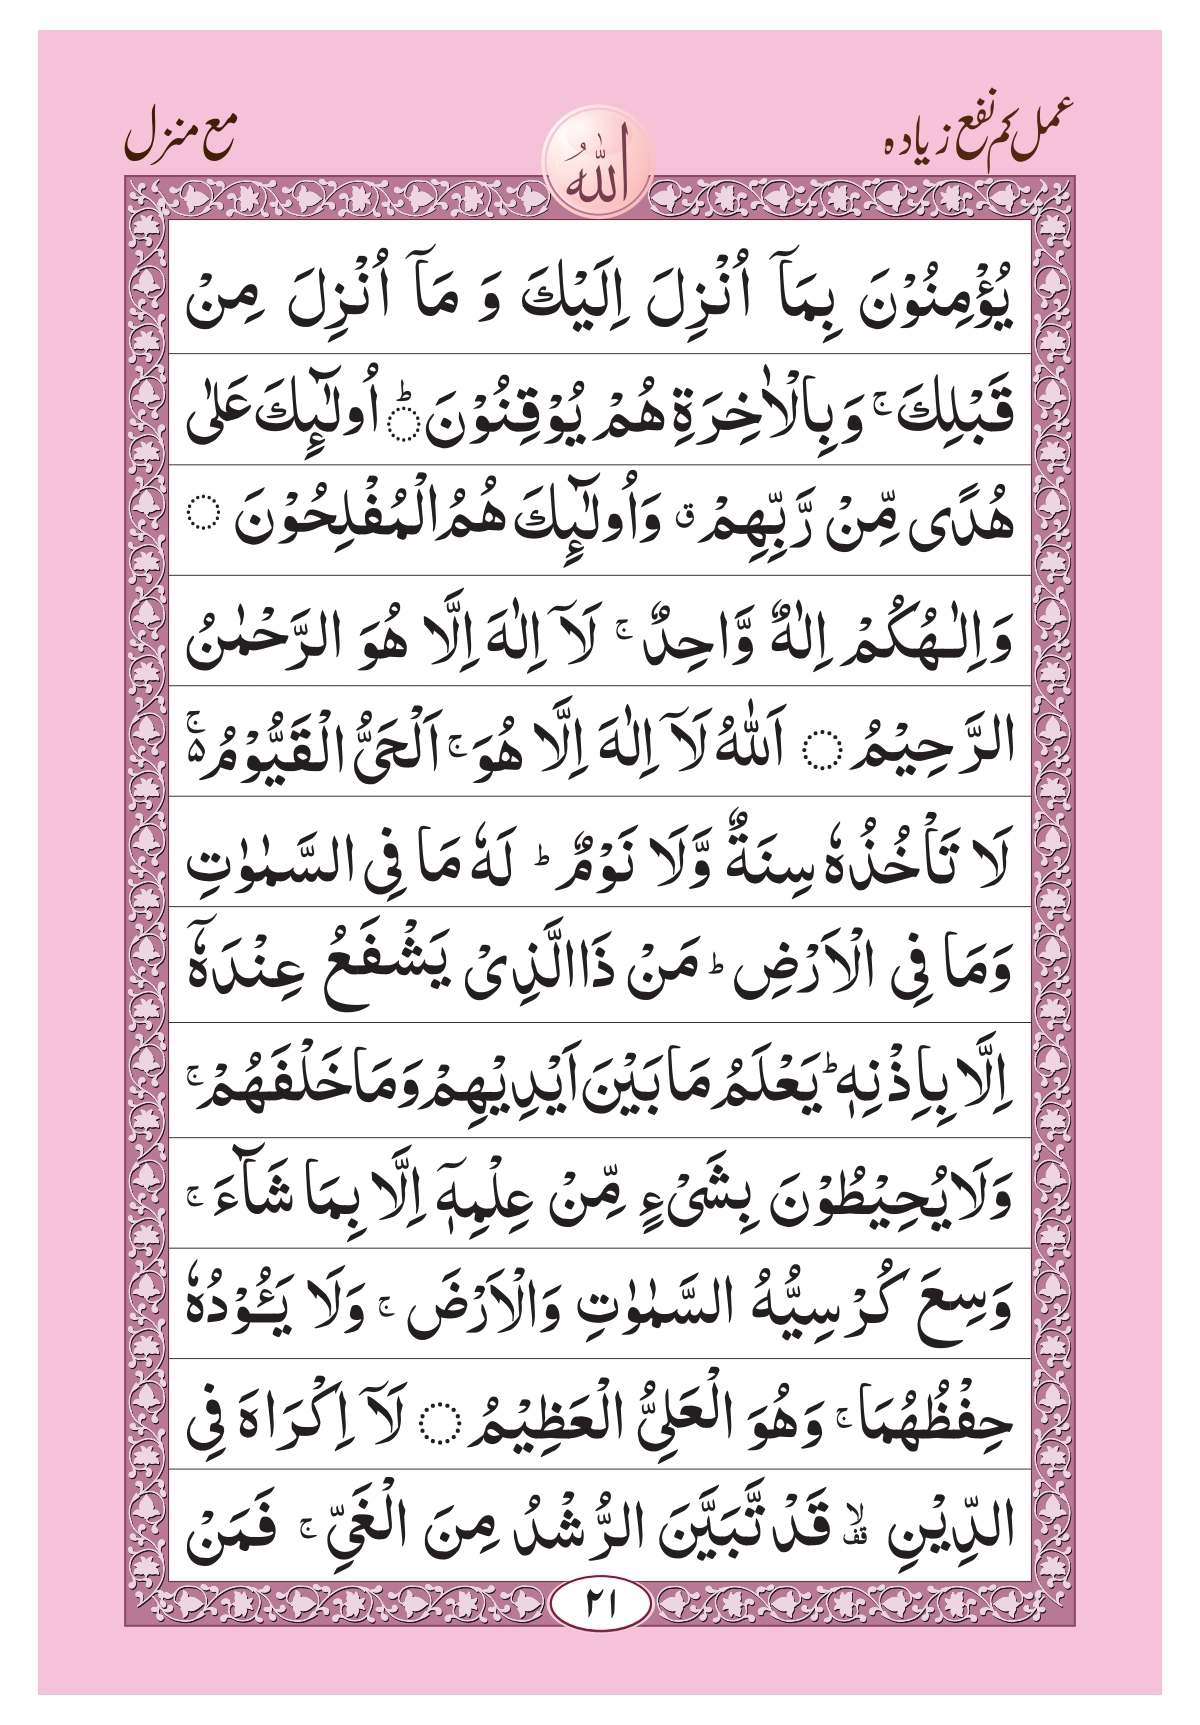 عمل کم نفع زیادہ
اللہ
مع منزل
يُؤْمِنُوْنَ بِمَآ اُنْزِلَ اِلَيْكَ وَ مَآ اُنْزِلَ مِنْ
قَبْلِكَ ۚ وَبِالْاٰخِرَةِ هُمْ يُوْقِنُوْنَ ؕ۝ اُولٰٓئِكَ عَلٰى
هُدًى مِّنْ رَّبِّهِمْ ۗ وَاُولٰٓئِكَ هُمُ الْمُفْلِحُوْنَ ۝
وَاِلٰـهُكُمْ اِلٰهٌ وَّاحِدٌ ۚ لَآ اِلٰهَ اِلَّا هُوَ الرَّحْمٰنُ
الرَّحِيْمُ ۝ اَللّٰهُ لَآ اِلٰهَ اِلَّا هُوَ ۚ اَلْحَىُّ الْقَيُّوْمُ ۚ۬
لَا تَاْخُذُهٗ سِنَةٌ وَّلَا نَوْمٌ ؕ لَهٗ مَا فِى السَّمٰوٰتِ
وَمَا فِى الْاَرْضِ ؕ مَنْ ذَا الَّذِىْ يَشْفَعُ عِنْدَهٗٓ
اِلَّا بِاِذْنِهٖ ؕ يَعْلَمُ مَا بَيْنَ اَيْدِيْهِمْ وَمَا خَلْفَهُمْ ۚ
وَلَا يُحِيْطُوْنَ بِشَىْءٍ مِّنْ عِلْمِهٖٓ اِلَّا بِمَا شَآءَ ۚ
وَسِعَ كُرْسِيُّهُ السَّمٰوٰتِ وَالْاَرْضَ ۚ وَلَا يَـُٔوْدُهٗ
حِفْظُهُمَا ۚ وَهُوَ الْعَلِىُّ الْعَظِيْمُ ۝ لَآ اِكْرَاهَ فِى
الدِّيْنِ ۟ۙ قَدْ تَّبَيَّنَ الرُّشْدُ مِنَ الْغَىِّ ۚ فَمَنْ
۲۱